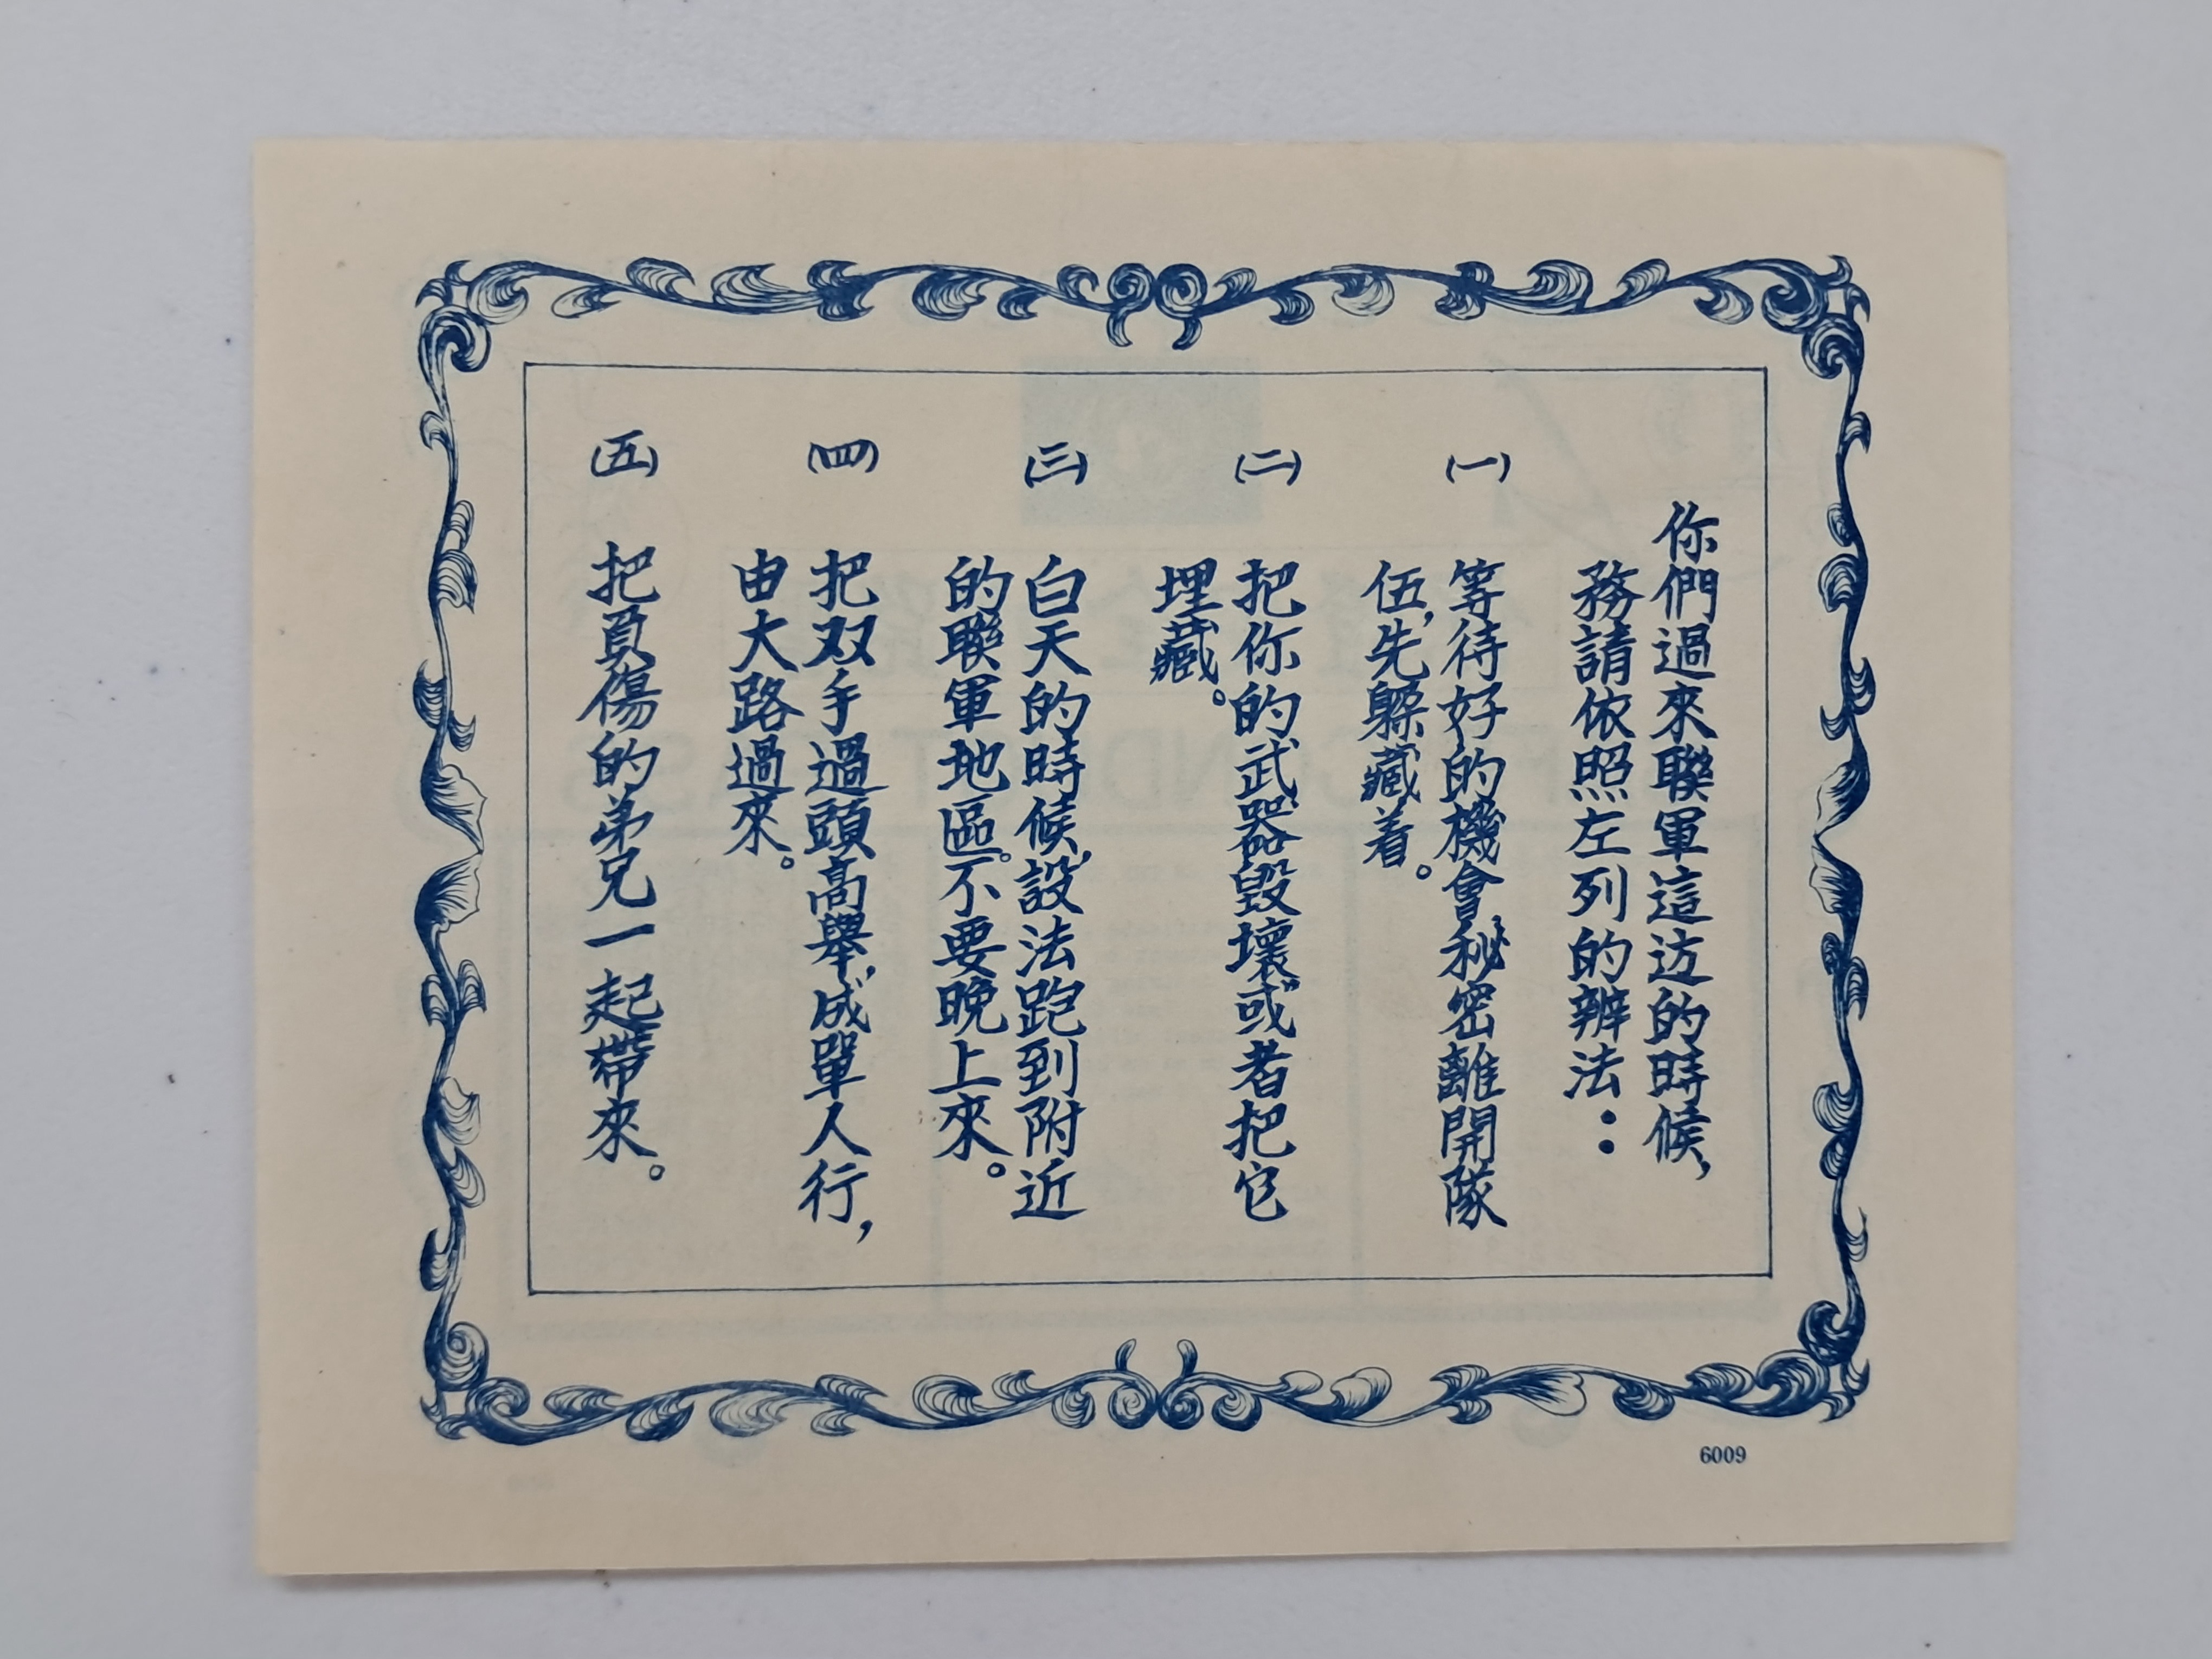 你們過來聯軍這边的時候，
務請依照左列的辨法：
㈠ 等待好的機會秘密離開隊
伍，先躲藏着。
㈡ 把你的武器毀壞或者把它
埋藏。
㈢ 白天的時候，設法跑到附近
的聯軍地區。不要晚上來。
㈣ 把双手過頭高舉，成單人行，
由大路過來。
㈤ 把負傷的弟兄一起帶來。
6009